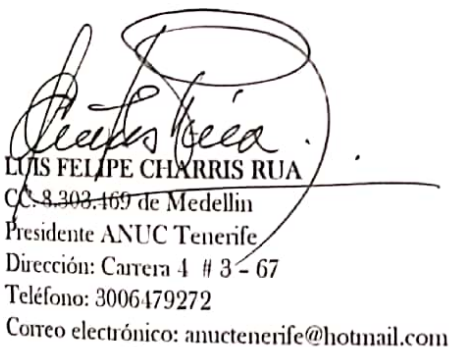 LUIS FELIPE CHARRIS RUA
CC. 8.303.469 de Medellin
Presidente ANUC Tenerife
Dirección: Carrera 4 # 3 – 67
Teléfono: 3006479272
Correo electrónico: anuctenerife@hotmail.com